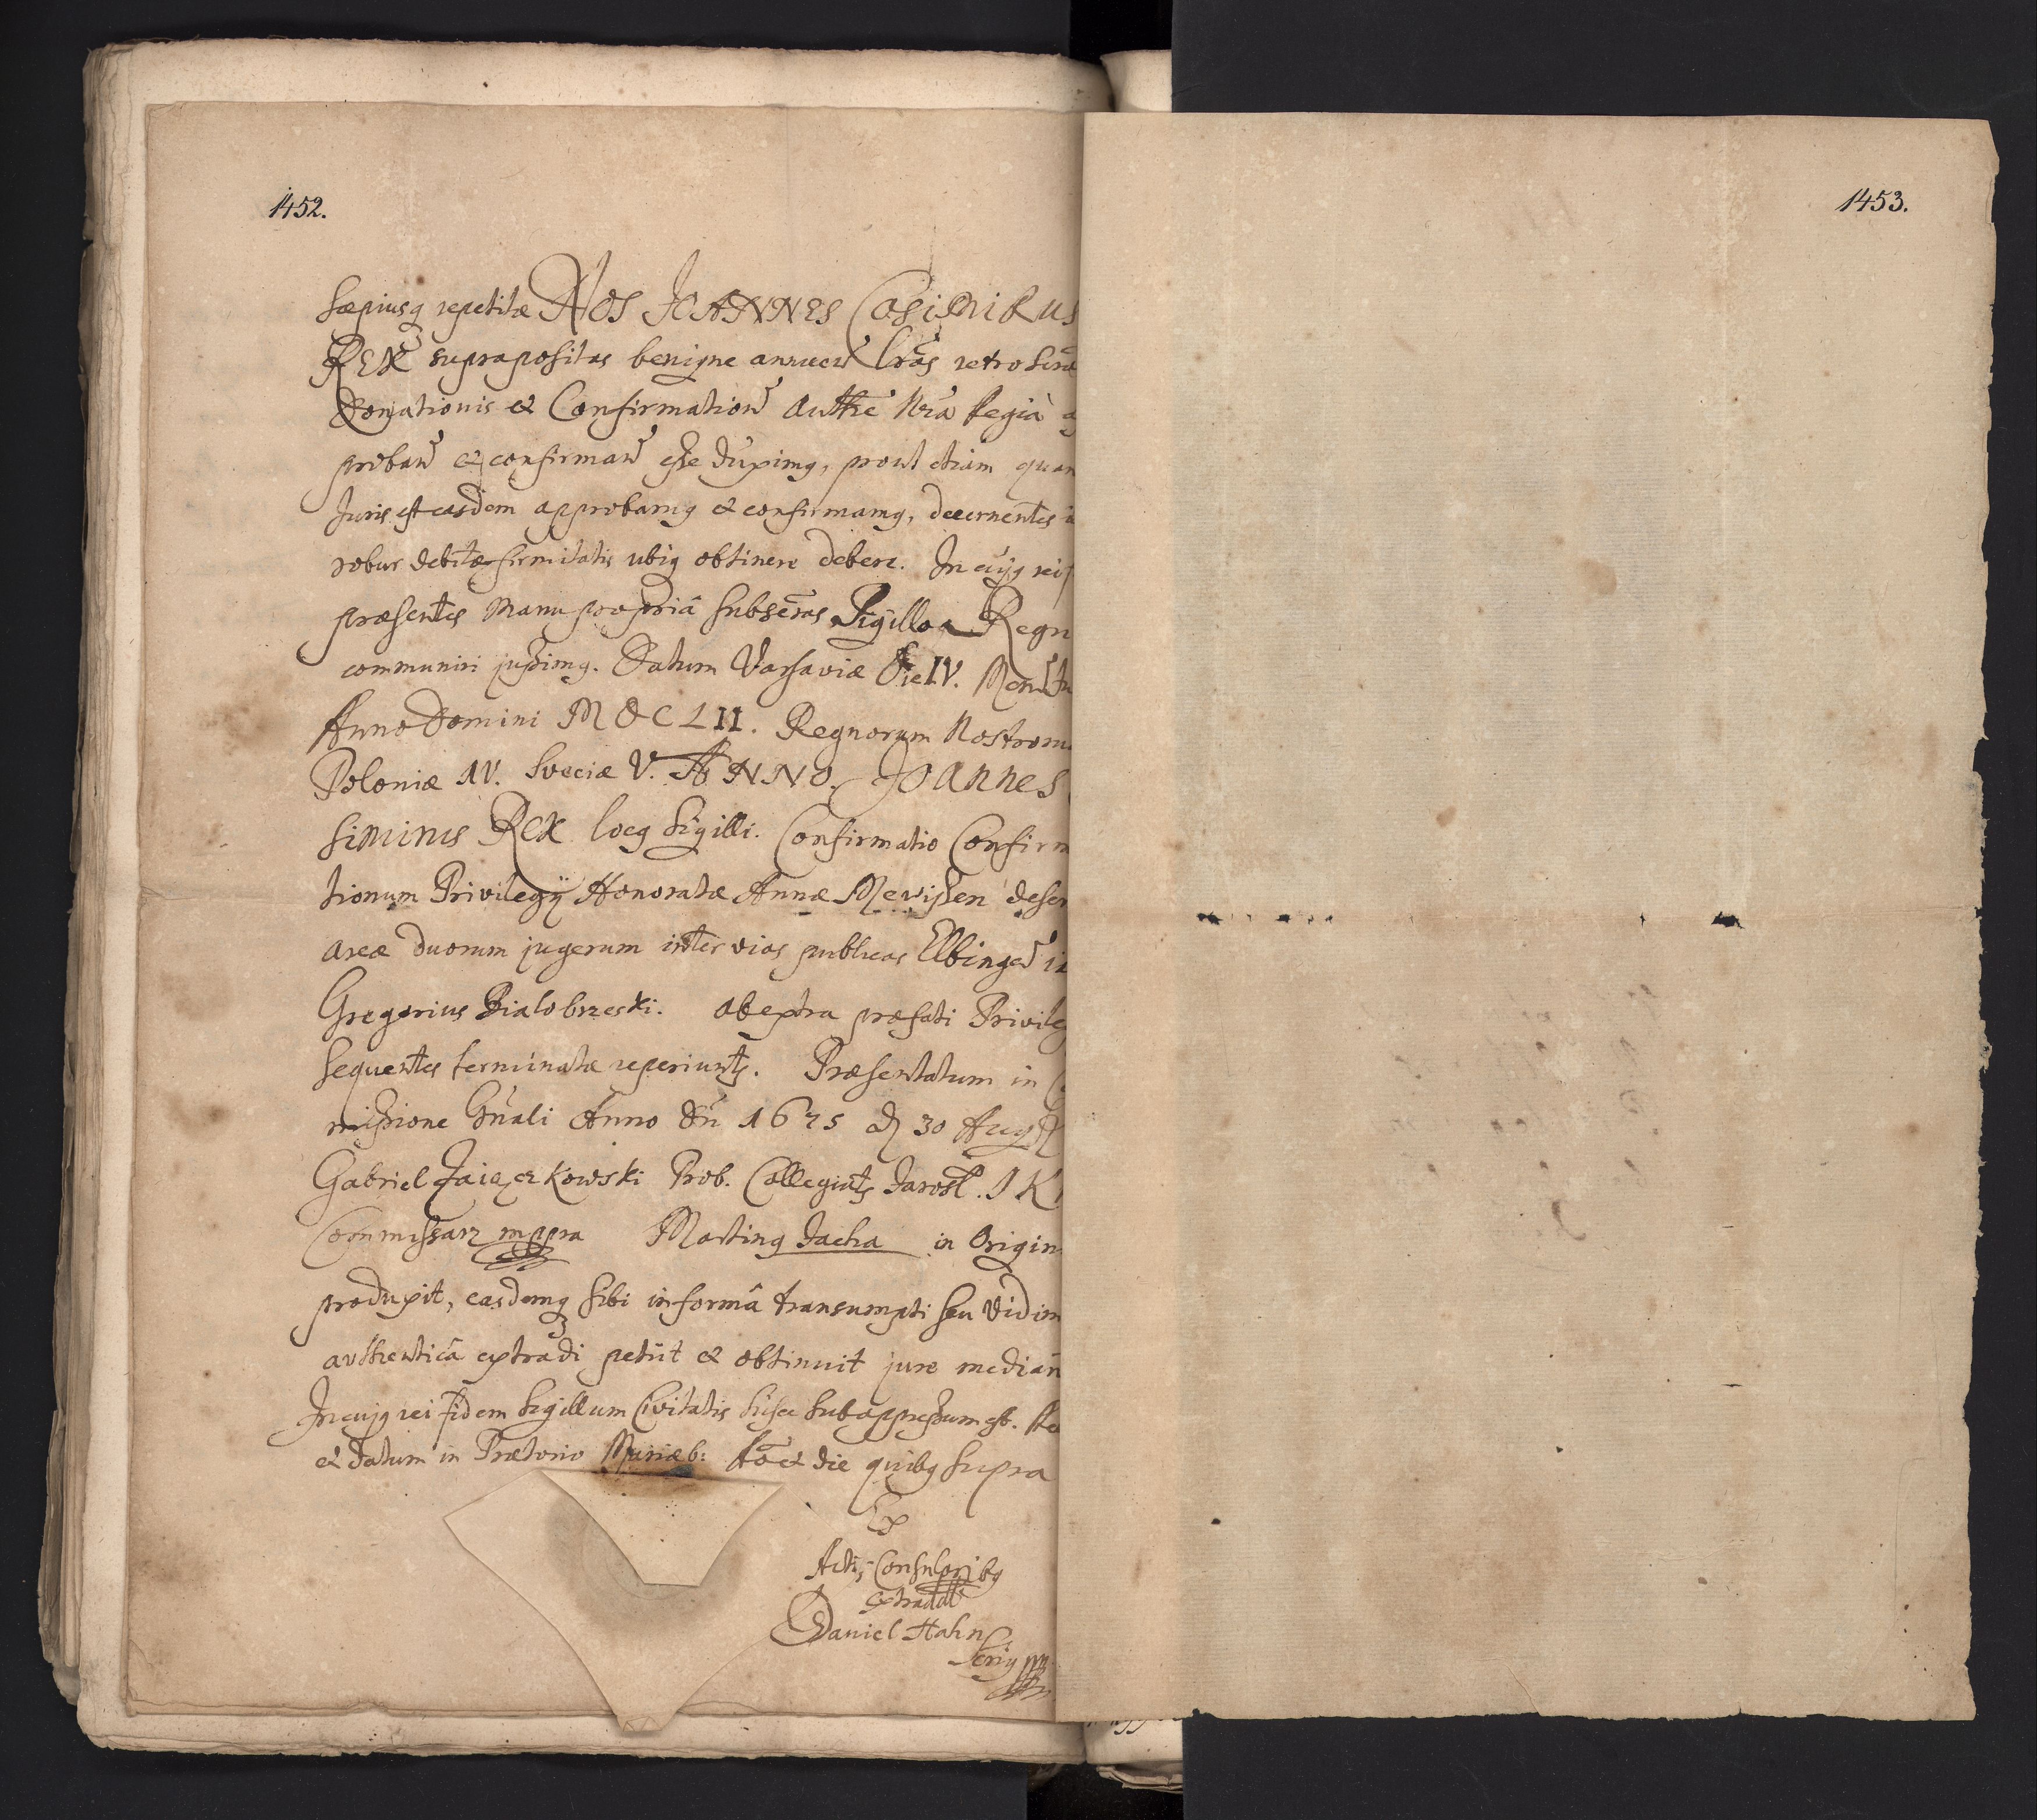 1452.
1453.
Sæpiusq repetitæ NOS JOANNES CASiMiRUS
REX suprapositas benigne annuen Lras retroscrip
Donationis & Confirmation Authte Nra Regia
proban & confirman esse duximg, prout etiam quan
Juris est easdem approbamg & confirmamg, decernentes
robur debitæ firmitatis ubiq obtinere debere. In cujg rei
præsentes Manu propriâ subscras Sigillo Regn
communiri jussimg. Datum Varsaviæ Die IV. Mens
Anno Domini MDCLII. Regnorum Nostrorum
Poloniæ IV. Sveciæ V. ANNO. JOANNES
SiMiRus REX Locg Sigilli. Confirmatio Confirm
tionum Privilegÿ Honoratæ Annæ Mewissen deser
areæ duorum jugerum inter vias publicas Elbingen
Gregorius Bialobrzeski. Ab extra præfati Privileg
sequentes terminata reperiuntr. Præsentatum in
missione Gnali Anno Dn 1675 d 30 Aug
Gabriel Jaiczerkowski Prob. Collegiatg Jarosl. J K
Commissarz mppra Marting Jacha in Origin
produxit, easdemq sibi in formâ transumpti seu Vidim
authenticâ extradi petiit & obtinuit jure median
In cujg rei fidem Sigillum Civitatis hisce subappressum est.
& datum in Prætorio Mariæb: Ao & die quibg supra
Ex
Actis Consularibg
extradit
Daniel Hahn